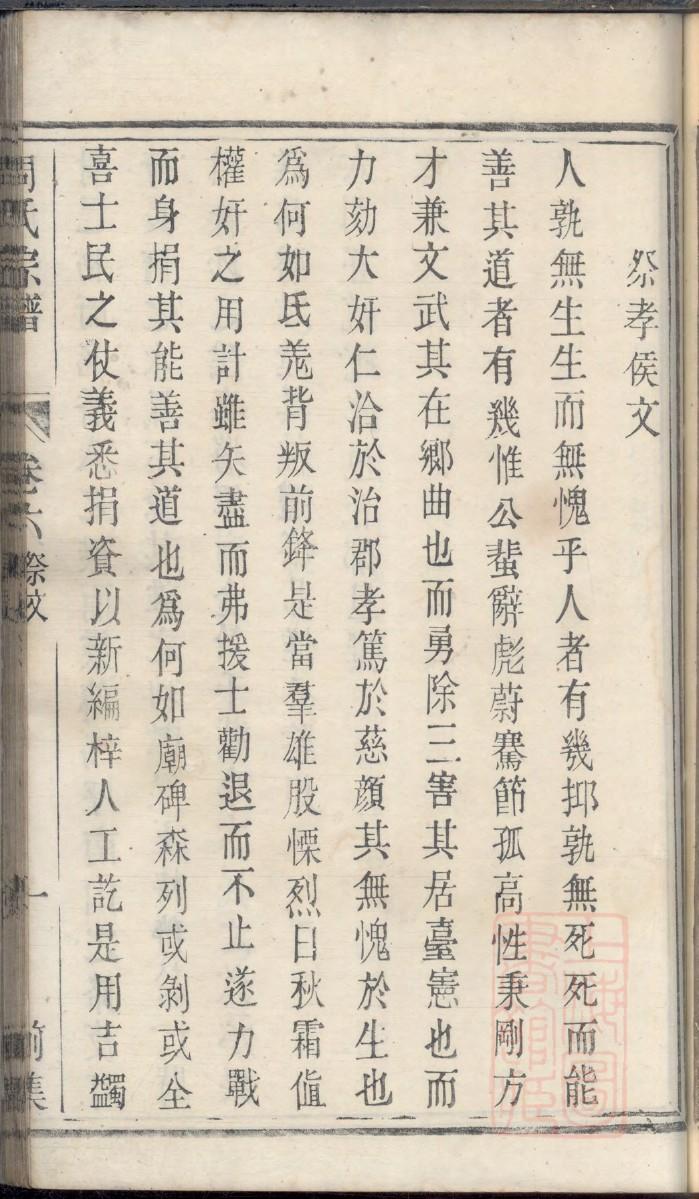 祭孝侯文
人孰無生生而無愧乎人者有幾抑孰無死死而能
善其道者有幾惟公蜚辭彪蔚騫節孤高性秉剛方
才兼文武其在鄉曲也而勇除三害其居臺憲也而
力劾大奸仁洽於治郡孝篤於慈顏其無愧於生也
為何如氐羗背叛前鋒是當羣雄股慄烈日秋霜值
權奸之用計雖矢盡而弗援士勸退而不止遂力戰
而身捐其能善其道也為何如廟碑森列或剝或全
喜士民之仗義悉捐資以新編梓人工訖是用吉蠲
周氏宗譜 卷六 祭文 一 前集